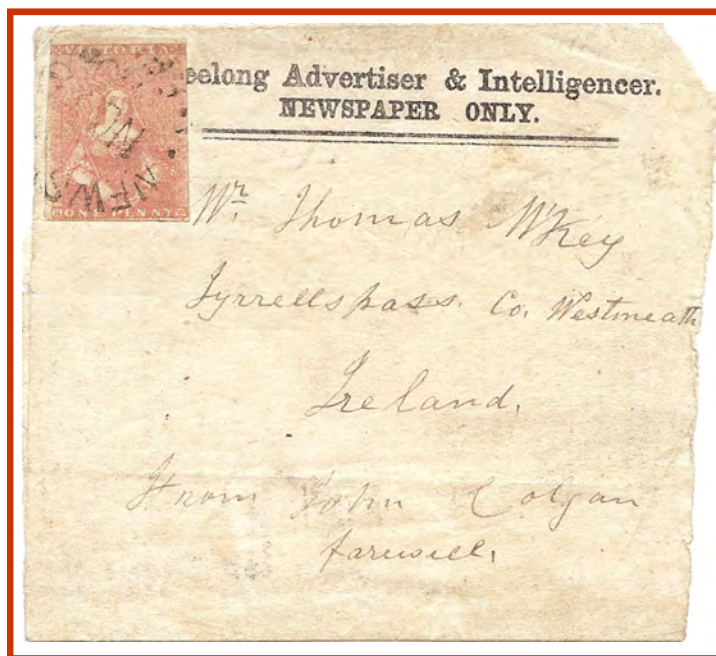 VICTORIA
ONE PENNY
NEWS
eelong Advertiser & Intelligencer.
NEWSPAPER ONLY.
Mr. Thomas McKey
Tyrrellspass. Co. Westmeath
Ireland,
From John Colgan
farewell,